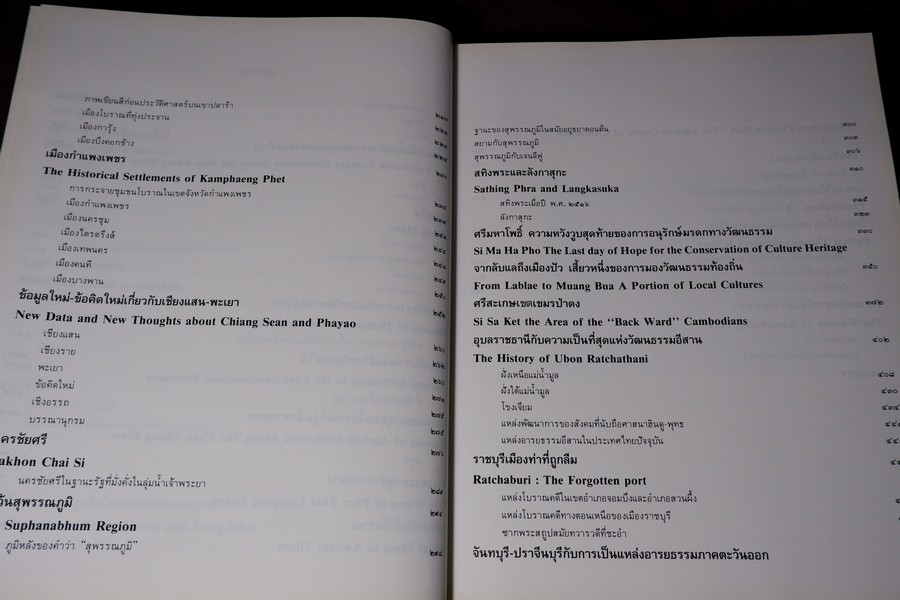 ภาพเขียนสีก่อนประวัติศาสตร์บนเขาปลาร้า
เมืองโบราณที่ทุ่งประจาน ๒๑๘
เมืองการุ้ง ๒๒๑
เมืองบึงคอกช้าง
เมืองกำแพงเพชร
The Historical Settlements of Kamphaeng Phet
การกระจายชุมชนโบราณในเขตจังหวัดกำแพงเพชร
เมืองกำแพงเพชร
เมืองนครชุม
เมืองไตรตรึงส์ ๒๔๑
เมืองเทพนคร ๒๔๔
เมืองคนที ๒๔๘
เมืองบางพาน ๒๔๙
ข้อมูลใหม่-ข้อคิดใหม่เกี่ยวกับเชียงแสน-พะเยา ๒๕๐
New Data and New Thoughts about Chiang Sean and Phayao ๒๕๒
เชียงแสน
เชียงราย ๒๖๐
พะเยา ๒๖๒
ข้อคิดใหม่ ๒๖๖
เชิงอรรถ ๒๘๑
บรรณานุกรม ๒๘๕
ครชัยศรี ๒๘๕
akhon Chai Si ๒๘๖
นครชัยศรีในฐานะรัฐที่มั่งคั่งในลุ่มน้ำเจ้าพระยา
วันสุพรรณภูมิ ๒๘๙
Suphanabhum Region ๒๙๔
ภูมิหลังของคำว่า “สุพรรณภูมิ” ๒๙๘
ฐานะของสุพรรณภูมิในสมัยอยุธยาตอนต้น ๓๐๐
สยามกับสุพรรณภูมิ ๓๐๓
สุพรรณภูมิกับเจนลีฟู ๓๐๖
สทิงพระและลังกาสุกะ ๓๑๐
Sathing Phra and Langkasuka
สทิงพระเมื่อปี พ.ศ. ๒๕๑๖ ๓๑๕
ลังกาสุกะ ๓๒๓
ศรีมหาโพธิ์ ความหวังวูบสุดท้ายของการอนุรักษ์มรดกทางวัฒนธรรม ๓๓๐
Si Ma Ha Pho The Last day of Hope for the Conservation of Culture Heritage
จากลับแลถึงเมืองบัว เสี้ยวหนึ่งของการมองวัฒนธรรมท้องถิ่น ๓๕๐
From Lablae to Muang Bua A Portion of Local Cultures
ศรีสะเกษเขตเขมรป่าดง ๓๘๒
Si Sa Ket the Area of the “Back Ward” Cambodians
อุบลราชธานีกับความเป็นที่สุดแห่งวัฒนธรรมอีสาน ๔๐๒
The History of Ubon Ratchathani
ฝั่งเหนือแม่น้ำมูล ๔๐๘
ฝั่งใต้แม่น้ำมูล ๔๓๐
โขงเจียม ๔๓๔
แหล่งพัฒนาการของสังคมที่นับถือศาสนาฮินดู-พุทธ
แหล่งอารยธรรมอีสานในประเทศไทยปัจจุบัน
ราชบุรีเมืองท่าที่ถูกลืม
Ratchaburi : The Forgotten port
แหล่งโบราณคดีในเขตอำเภอจอมบึงและอำเภอสวนผึ้ง
แหล่งโบราณคดีทางตอนเหนือของเมืองราชบุรี
ซากพระสถูปสมัยทวารวดีที่ชะอำ
จันทบุรี-ปราจีนบุรีกับการเป็นแหล่งอารยธรรมภาคตะวันออก